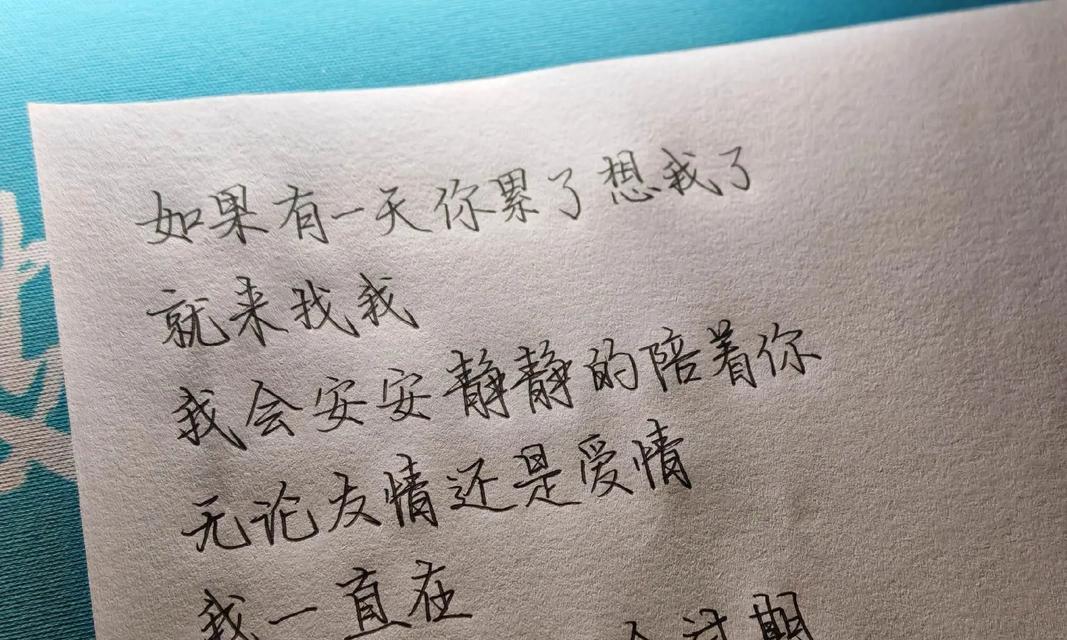 如果有一天你累了想我了
就来找我
我会安安静静的陪着你
无论友情还是爱情
我一直在
过期